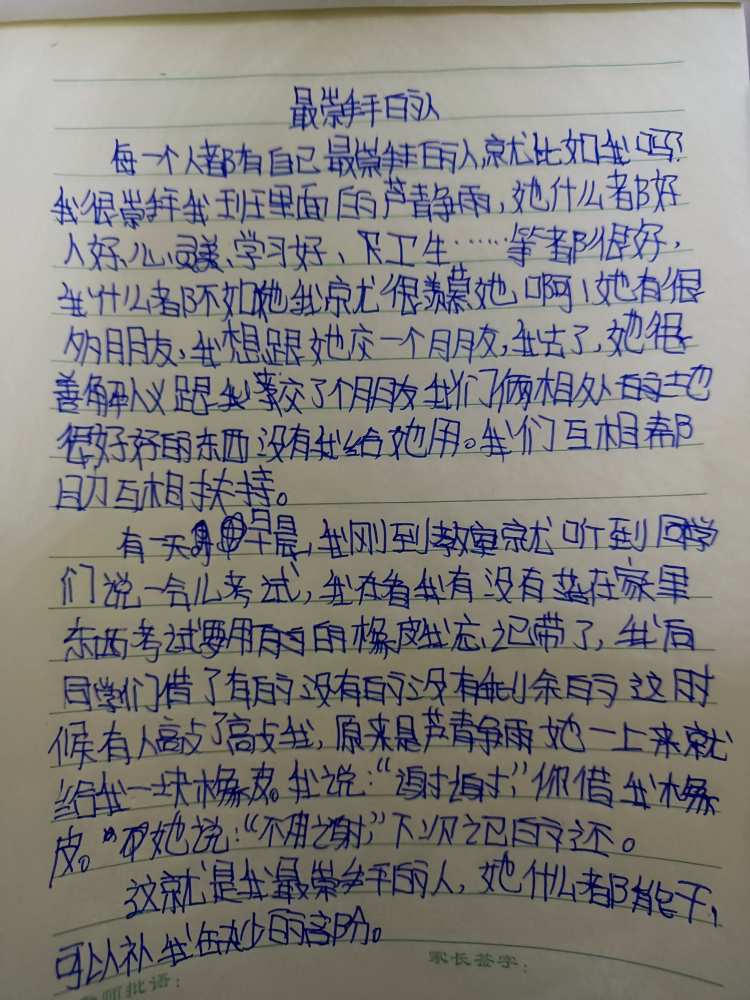 最崇拜的人
每一个人都有自己最崇拜的人,就比如我吗?
我很崇拜我班里面的芦静雨,她什么都好
人好、心灵美、学习好、卫生……等都很好,
我什么都不如她我就很羡慕她啊!她有很
多朋友,我想跟她交一个朋友,我去了,她很
善解人议跟我交了个朋友我们俩相处的也
很好好的东西没有我给她用。我们互相帮
助互相扶持。
有一天早晨,我刚到教室就听到同学
们说一会儿考试,我在看我有没有落在家里
东西考试要用的橡皮我忘记带了,我后
同学们借了有的没有的没有剩余的这时
候有人敲了敲我,原来是芦静雨她一上来就
给我一块橡皮。我说:“谢谢,”你借我橡
皮。”她说:“不用谢,”下次记的还。
这就是我最崇拜的人,她什么都能干,
可以补我缺少的部分。
家长签字:
师批语: